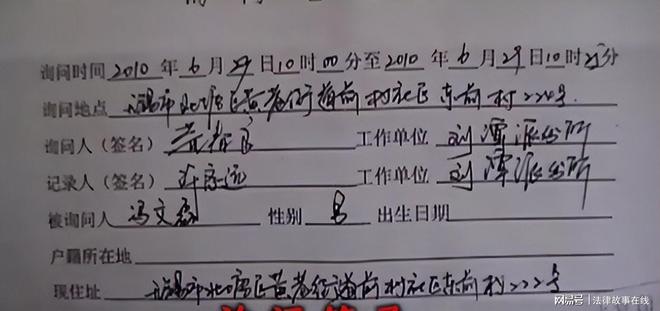 询问时间 2010 年 6 月 29 日 10 时 00 分至 2010 年 6 月 29 日 10 时 25 分
询问地点 无锡市北塘区黄巷街道前村社区东前村222号
询问人（签名） 工作单位 刘潭派出所
记录人（签名） 工作单位 刘潭派出所
被询问人 冯文 性别 男 出生日期
户籍所在地
现住址 无锡市北塘区黄巷街道前村社区东前村222号
网易号 | 法律故事在线